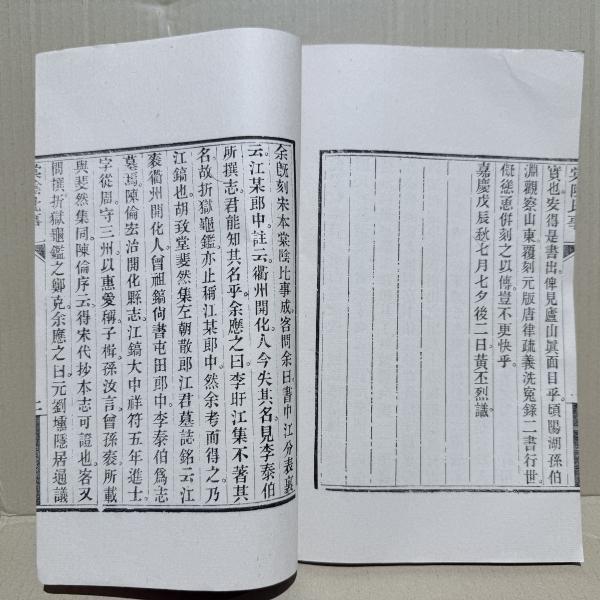 棠陰比事
實也安得是書出俾見廬山眞面目乎頃陽湖孫伯
淵觀察山東覆刻元版唐律疏義洗冤錄二書行世
儗慫恿併刻之以傳豈不更快乎
嘉慶戊辰秋七月七夕後二日黃丕烈識
余旣刻宋本棠陰比事成客問余曰書中江分表裏
云江某郎中註云衢州開化人今失其名見李泰伯
所撰志君能知其名乎余應之曰李旴江集不著其
名故折獄龜鑑亦止稱江某郎中然余考而得之乃
江鎬也胡玫堂斐然集左朝散郎江君墓誌銘云江
袠衢州開化人曾祖鎬尙書屯田郎中李泰伯爲志
墓焉陳倫宏治開化縣志江鎬大中祥符五年進士
字從周守三州以惠愛稱子楫孫汝言曾孫袠所載
與斐然集同陳倫序云得宋代抄本志可證也客又
問撰折獄龜鑑之鄭克余應之曰元劉壎隱居通議
棠陰比事
二